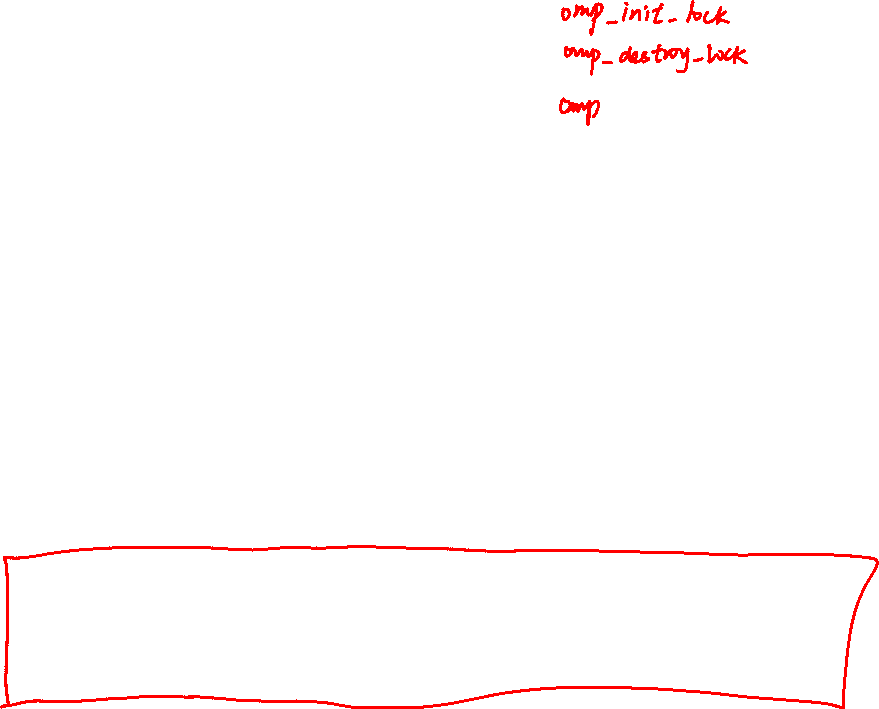 omp_init_lock
omp_destroy_lock
omp